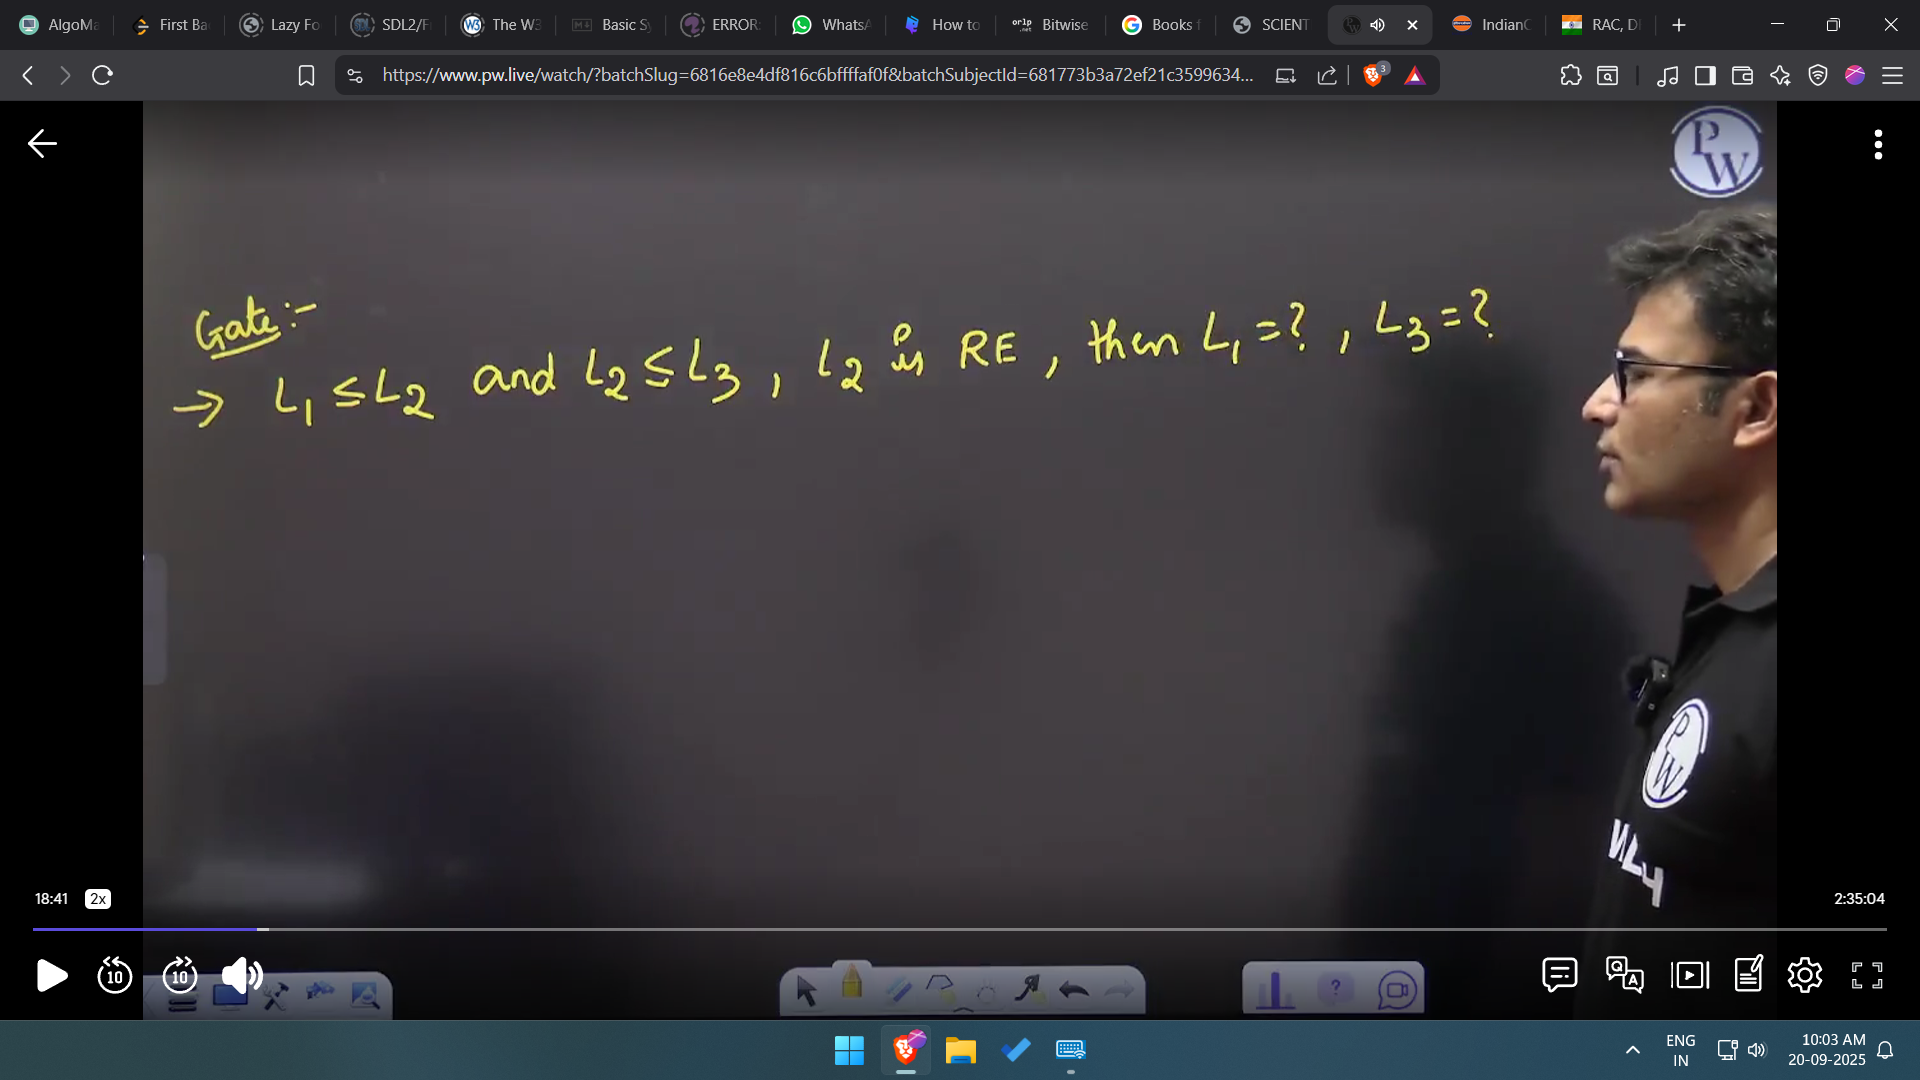 AlgoMa
First Ba
Lazy Fo
SDL2/Fr
The W3
Basic Sy
ERROR:
WhatsA
How to
orlp .net
Bitwise
Books f
SCIENT
IndianC
RAC, DR
https://www.pw.live/watch/?batchSlug=6816e8e4df816c6bffffaf0f&batchSubjectId=681773b3a72ef21c3599634...
3
PW
Gate:-
→ L₁ ≤ L₂ and L₂ ≤ L₃, L₂ is RE, then L₁ =?, L₃ =?
PW
18:41 2x
2:35:04
10 10
ENG
IN
10:03 AM
20-09-2025